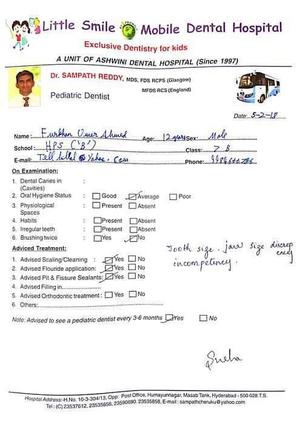 Little Smile Mobile Dental Hospital
Exclusive Dentistry for kids
A UNIT OF ASHWINI DENTAL HOSPITAL (Since 1997)
Dr. SAMPATH REDDY, MDS, FDS RCPS (Glasgow)
MFDS RCS (England)
Pediatric Dentist
Date: 5-2-18
Name: Furkhan Umer Ahmed Age: 12 years Sex: Male
School: HPS ('B') Class: 7 B
E-mail: Phone:
On Examination:
1. Dental Caries in (Cavities)
2. Oral Hygiene Status Good Average Poor
3. Physiological Spaces Present Absent
4. Habits Present Absent
5. Irregular teeth Present Absent
6. Brushing twice Yes No
Tooth size - jaw size discrepency
incompetency.
Adviced Treatment:
1. Advised Scaling/Cleaning : Yes No
2. Advised Fluoride application: Yes No
3. Advised Pit & Fissure Sealants: Yes No
4. Advised Filling in
5. Advised Orthodontic treatment : Yes No
6. Others:
Note: Advised to see a pediatric dentist every 3-6 months Yes No
Sneha
Hospital Address: H.No. 10-3-304/13, Opp: Post Office, Humayunnagar, Masab Tank, Hyderabad - 500 028 T.S.
Tel: (C) 23537612, 23535658, 23590690, 23535858. Email: sampathcheruku@yahoo.com